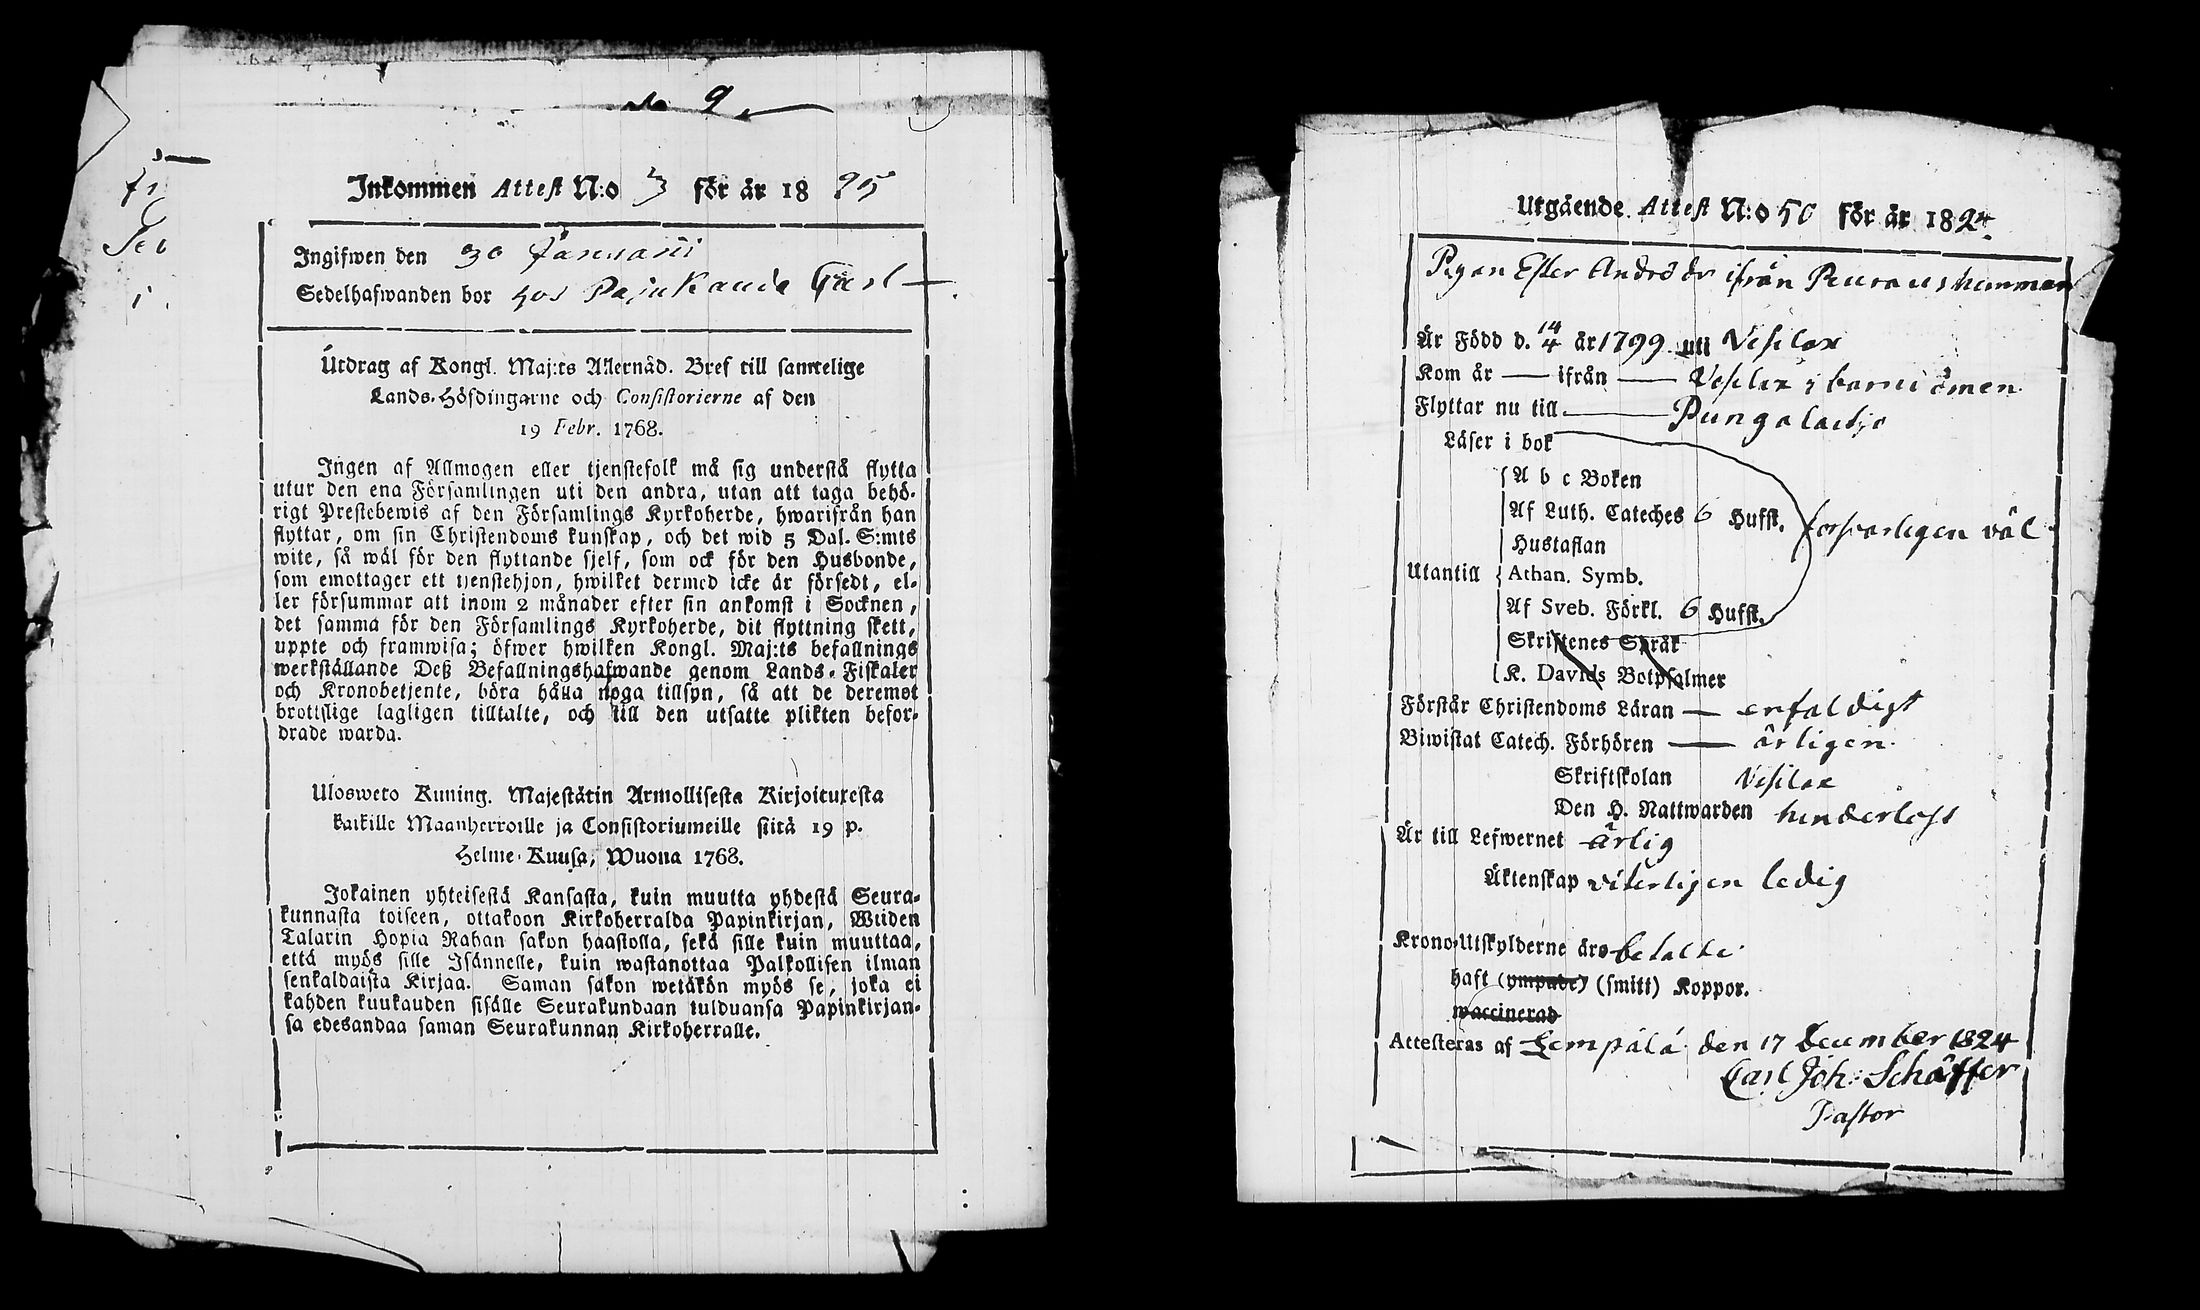 9
Inkommen Attest N:o 3 för år 18 25
Ingifwen den 30 Januarii
Sedelhafwanden bor hos Pajukanda Carl
Utdrag af Kongl. Maj:ts Allernåd. Bref till samtelige
Lands-Höfdingarne och Consistorierne af den
19 Febr. 1768.
Ingen af Allmogen eller tjenstefolk må sig understå flytta
utur den ena Församlingen uti den andra, utan att taga behö-
rigt Prestebewis af den Församlings Kyrkoherde, hwarifrån han
flyttar, om sin Christendoms kunskap, och det wid 5 Dal. S:mts
wite, så wäl för den flyttande sjelf, som ock för den Husbonde,
som emottager ett tjenstehjon, hwilket dermed icke är försedt, el-
ler försummar att inom 2 månader efter sin ankomst i Socknen,
det samma för den Församlings Kyrkoherde, dit flyttning skett,
uppte och framwisa; öfwer hwilken Kongl. Maj:ts befallnings
werkställande Deß Befallningshafwande genom Lands-Fiskaler
och Kronobetjente, böra hålla noga tillsyn, så att de deremot
brottslige lagligen tilltalte, och till den utsatte plikten befor-
drade warda.
Ulosweto Kuning. Majestätin Armollisesta Kirjoituxesta
kaikille Maanherroille ja Consistoriumeille siitä 19 p.
Helme-Kuusa, Wuona 1768.
Jokainen yhteisestä Kansasta, kuin muutta yhdestä Seura-
kunnasta toiseen, ottakoon Kirkoherralda Papinkirjan, Wiiden
Talarin Hopia Rahan sakon haastolla, sekä sille kuin muuttaa,
että myös sille Isännelle, kuin wastanottaa Palkollisen ilman
senkaldaista Kirjaa. Saman sakon wetäkön myös se, joka ei
kahden kuukauden sisälle Seurakundaan tulduansa Papinkirjan-
sa edesandaa saman Seurakunnan Kirkoherralle.
Utgående Attest N:o 50 för år 1824.
Pigan Ester Andrs dr ifrån hemman
Är Född d. 14/4 år 1799 uti Vesilax
Kom år — ifrån — Vesilax i barndomen
Flyttar nu till — Pungalaitio
Läser i bok
A b c Boken
Af Luth. Cateches 6 Hufst. försvarligen väl
Hustaflan
Utantill Athan. Symb.
Af Sveb. Förkl. 6 Hufst.
Skriftenes Språk
K. Davids Botpsalmer
Förstår Christendoms Läran — enfaldigt
Biwistat Catech. Förhören — årligen
Skriftskolan Vesilax
Den H. Nattwarden hinderlöst
Är till Lefwernet ärlig
Äktenskap viterligen ledig
Krono-Utskylderne äro betalte
haft (ympade) (smitt) Koppor.
waccinerad
Attesteras af Lempälä den 17 December 1824
Carl Joh: Schäffer
Pastor